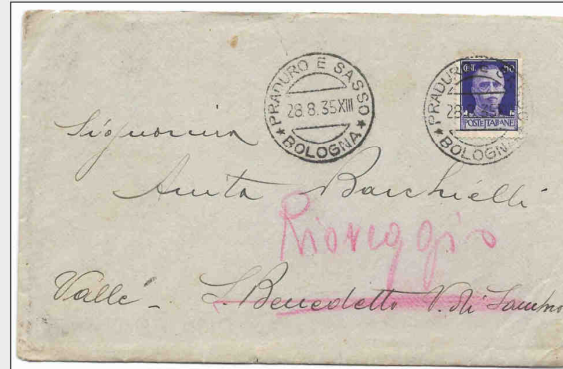 PRADURO E SASSO
28.8.35 XIII
BOLOGNA
PRADURO E S
28.8.35
BOLOGNA
POSTE ITALIANE
Signorina
Anita Barchielli
Rioveggio
Valle - S. Benedetto V. di Sambro